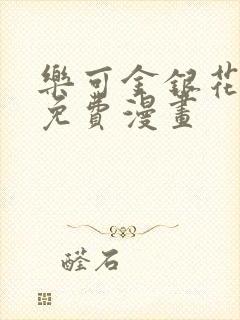 樂可金銀花
免費漫畫
醛石